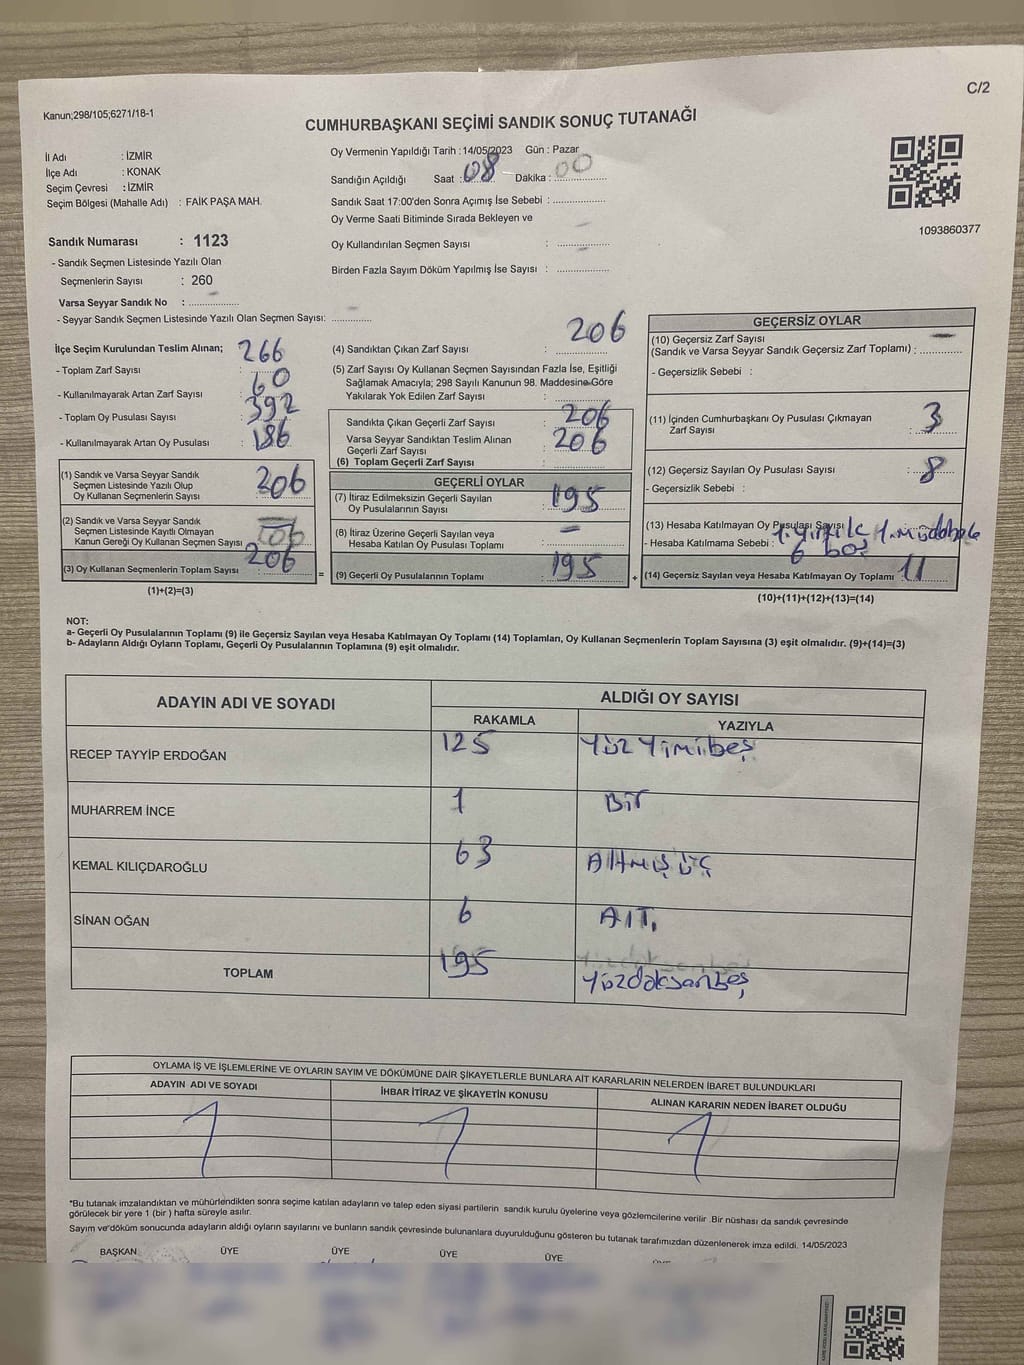 C/2
Kanun;298/105;6271/18-1
CUMHURBAŞKANI SEÇİMİ SANDIK SONUÇ TUTANAĞI
İl Adı : İZMİR
İlçe Adı : KONAK
Seçim Çevresi : İZMİR
Seçim Bölgesi (Mahalle Adı) : FAİK PAŞA MAH.
Oy Vermenin Yapıldığı Tarih : 14/05/2023 Gün : Pazar
Sandığın Açıldığı Saat : 08 Dakika : 00
Sandık Saat 17:00'den Sonra Açımış İse Sebebi :
Oy Verme Saati Bitiminde Sırada Bekleyen ve
Oy Kullandırılan Seçmen Sayısı : -
Birden Fazla Sayım Döküm Yapılmış İse Sayısı :
1093860377
Sandık Numarası : 1123
- Sandık Seçmen Listesinde Yazılı Olan
Seçmenlerin Sayısı : 260
Varsa Seyyar Sandık No : -
- Seyyar Sandık Seçmen Listesinde Yazılı Olan Seçmen Sayısı: -
İlçe Seçim Kurulundan Teslim Alınan;
- Toplam Zarf Sayısı : 266
- Kullanılmayarak Artan Zarf Sayısı : 60
- Toplam Oy Pusulası Sayısı : 392
- Kullanılmayarak Artan Oy Pusulası : 186
(1) Sandık ve Varsa Seyyar Sandık
Seçmen Listesinde Yazılı Olup
Oy Kullanan Seçmenlerin Sayısı : 206
(2) Sandık ve Varsa Seyyar Sandık
Seçmen Listesinde Kayıtlı Olmayan
Kanun Gereği Oy Kullanan Seçmen Sayısı
(3) Oy Kullanan Seçmenlerin Toplam Sayısı : 206
(1)+(2)=(3)
(4) Sandıktan Çıkan Zarf Sayısı : 206
(5) Zarf Sayısı Oy Kullanan Seçmen Sayısından Fazla İse, Eşitliği
Sağlamak Amacıyla; 298 Sayılı Kanunun 98. Maddesine Göre
Yakılarak Yok Edilen Zarf Sayısı :
Sandıkta Çıkan Geçerli Zarf Sayısı : 206
Varsa Seyyar Sandıktan Teslim Alınan
Geçerli Zarf Sayısı : 206
(6) Toplam Geçerli Zarf Sayısı :
GEÇERLİ OYLAR
(7) İtiraz Edilmeksizin Geçerli Sayılan
Oy Pusulalarının Sayısı : 195
(8) İtiraz Üzerine Geçerli Sayılan veya
Hesaba Katılan Oy Pusulası Toplamı : -
= (9) Geçerli Oy Pusulalarının Toplamı : 195 +
GEÇERSİZ OYLAR
(10) Geçersiz Zarf Sayısı
(Sandık ve Varsa Seyyar Sandık Geçersiz Zarf Toplamı) : -
- Geçersizlik Sebebi :
(11) İçinden Cumhurbaşkanı Oy Pusulası Çıkmayan
Zarf Sayısı : 3
(12) Geçersiz Sayılan Oy Pusulası Sayısı : 8
- Geçersizlik Sebebi :
(13) Hesaba Katılmayan Oy Pusulası Sayısı
- Hesaba Katılmama Sebebi : 1.yırtık 1.müdahale
6 boş
(14) Geçersiz Sayılan veya Hesaba Katılmayan Oy Toplamı : 11
(10)+(11)+(12)+(13)=(14)
NOT:
a- Geçerli Oy Pusulalarının Toplamı (9) ile Geçersiz Sayılan veya Hesaba Katılmayan Oy Toplamı (14) Toplamları, Oy Kullanan Seçmenlerin Toplam Sayısına (3) eşit olmalıdır. (9)+(14)=(3)
b- Adayların Aldığı Oyların Toplamı, Geçerli Oy Pusulalarının Toplamına (9) eşit olmalıdır.
ADAYIN ADI VE SOYADI
ALDIĞI OY SAYISI
RAKAMLA YAZIYLA
RECEP TAYYİP ERDOĞAN 125 Yüz Yimibeş
MUHARREM İNCE 1 Bir
KEMAL KILIÇDAROĞLU 63 Altmış üç
SİNAN OĞAN 6 Altı
TOPLAM 195 Yüzdoksanbeş
OYLAMA İŞ VE İŞLEMLERİNE VE OYLARIN SAYIM VE DÖKÜMÜNE DAİR ŞİKAYETLERLE BUNLARA AİT KARARLARIN NELERDEN İBARET BULUNDUKLARI
ADAYIN ADI VE SOYADI İHBAR İTİRAZ VE ŞİKAYETİN KONUSU ALINAN KARARIN NEDEN İBARET OLDUĞU
*Bu tutanak imzalandıktan ve mühürlendikten sonra seçime katılan adayların ve talep eden siyasi partilerin sandık kurulu üyelerine veya gözlemcilerine verilir. Bir nüshası da sandık çevresinde
görülecek bir yere 1 (bir ) hafta süreyle asılır.
Sayım ve döküm sonucunda adayların aldığı oyların sayılarını ve bunların sandık çevresinde bulunanlara duyurulduğunu gösteren bu tutanak tarafımızdan düzenlenerek imza edildi. 14/05/2023
BAŞKAN ÜYE ÜYE ÜYE ÜYE